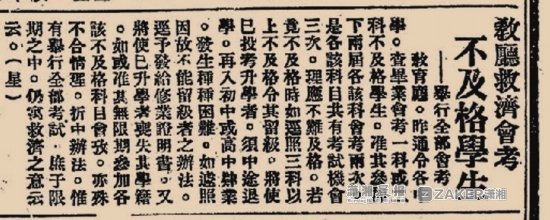 敎廳救濟會考
不及格學生
——舉行全部會考
教育廳。昨通令各
學。查畢業會考一科或
科不及格學生。准其參
下兩屆各該科會考兩次
是各該科目共有考試機會
三次。理應不難及格。若
竟不格時如遵照三科以
上不及格令其留級。將使
已投考升學者。須中途退
學。再入初中或高中肄業
。發生種種困難。如遵照
因故不能留級者之辦法。
逕予發給修業證明書。又
將使已升學者喪失其學籍
。如或准其無限期參加各
該不及格科目會攷。亦殊
不合情理。折中辦法。惟
有舉行全部考試。庶于限
期之中。仍寓救濟之意云
云。(星)
ZAKER潇湘